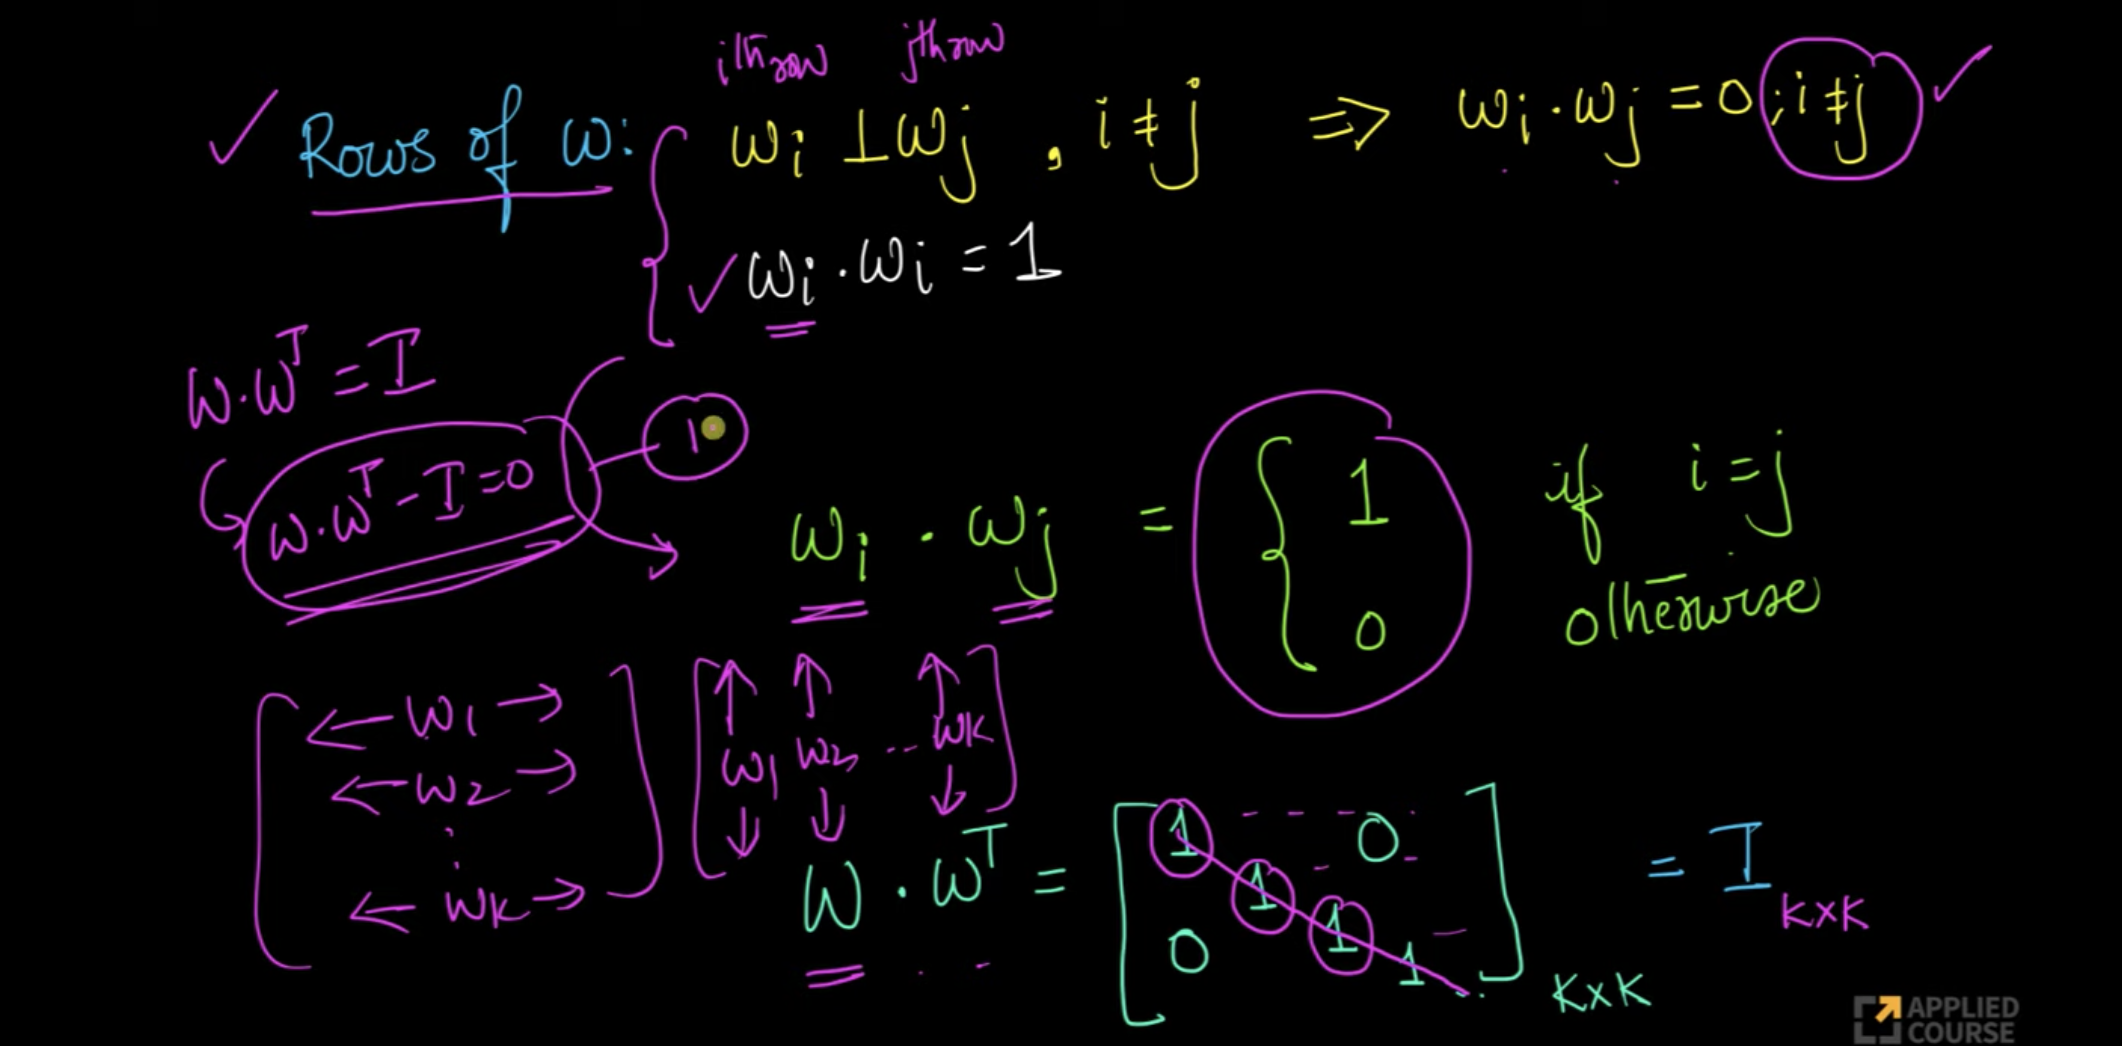 ith row jth row
Rows of W: { wi ⊥ wj , i ≠ j ⇒ wi · wj = 0 ; i ≠ j
wi · wi = 1
W · W^T = I
W · W^T - I = 0
1
wi · wj = { 1 if i = j
0 otherwise
[ ← w1 → [ ↑ ↑ ↑ ]
← w2 → w1 w2 .. wk
⋮ ↓ ↓ ↓
← wk → ]
W · W^T = [ 1 - - - - 0
1
1
0 1 ] K×K = I K×K
APPLIED
COURSE